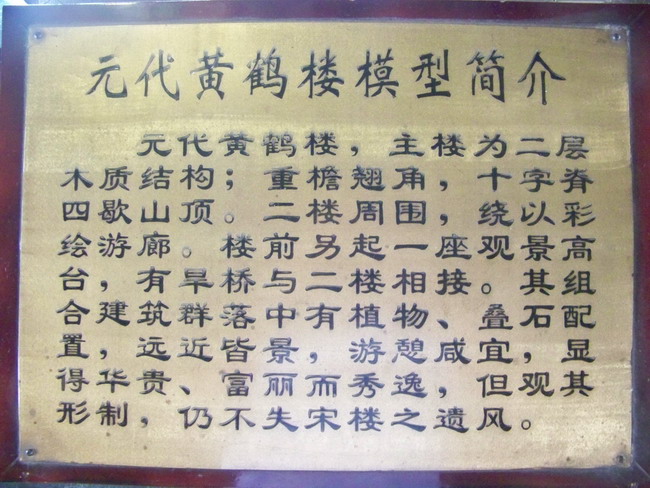 元代黄鹤楼模型简介
元代黄鹤楼，主楼为二层
木质结构；重檐翘角，十字脊
四歇山顶。二楼周围，绕以彩
绘游廊。楼前另起一座观景高
台，有旱桥与二楼相接。其组
合建筑群落中有植物、叠石配
置，远近皆景，游憩咸宜，显
得华贵、富丽而秀逸，但观其
形制，仍不失宋楼之遗风。